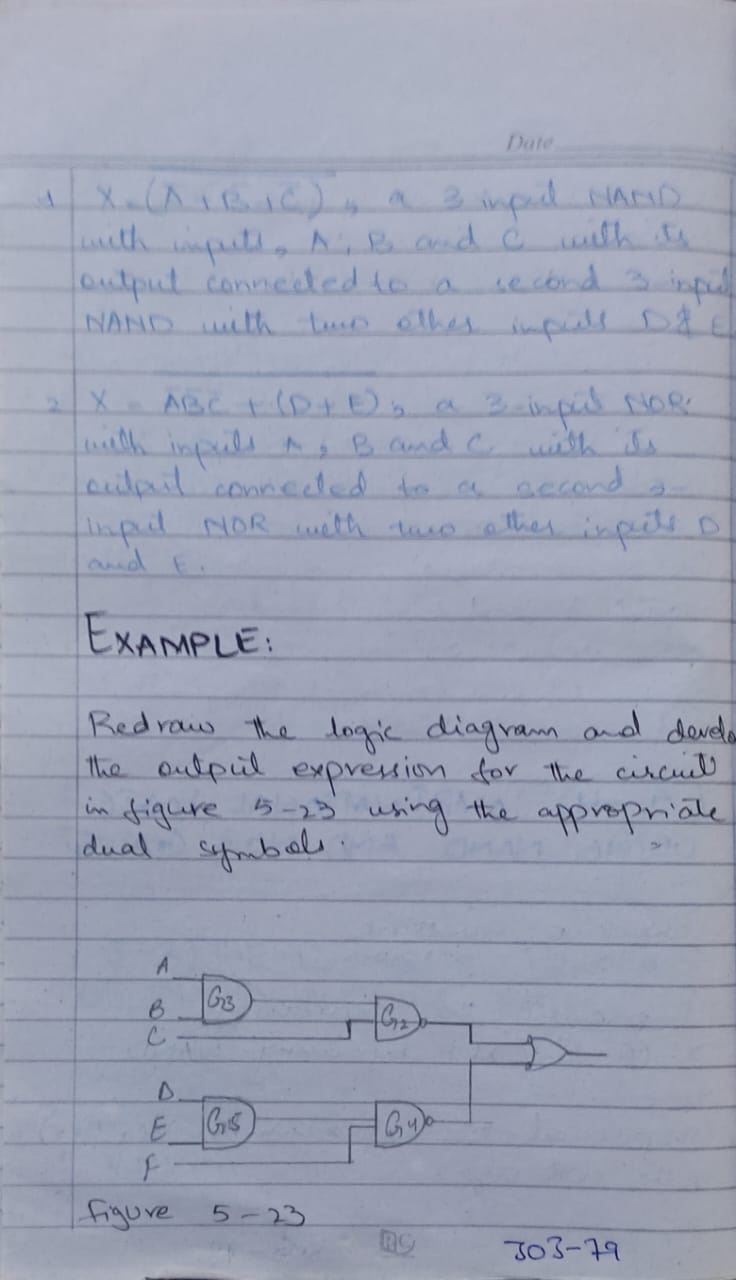 Date
1 X = (A + B + C), a 3 input NAND
with inputs, A, B and C with its
output connected to a second 3 input
NAND with two other inputs D & E
2 X = ABC + (D + E), a 3-input NOR
with inputs A, B and C with its
output connected to a second 3-
input NOR with two other inputs D
and E.
EXAMPLE:
Redraw the logic diagram and develo
the output expression for the circuit
in figure 5-23 using the appropriate
dual symbols.
A
B G3
C G2
D
E G5 G4
F
figure 5-23
303-79